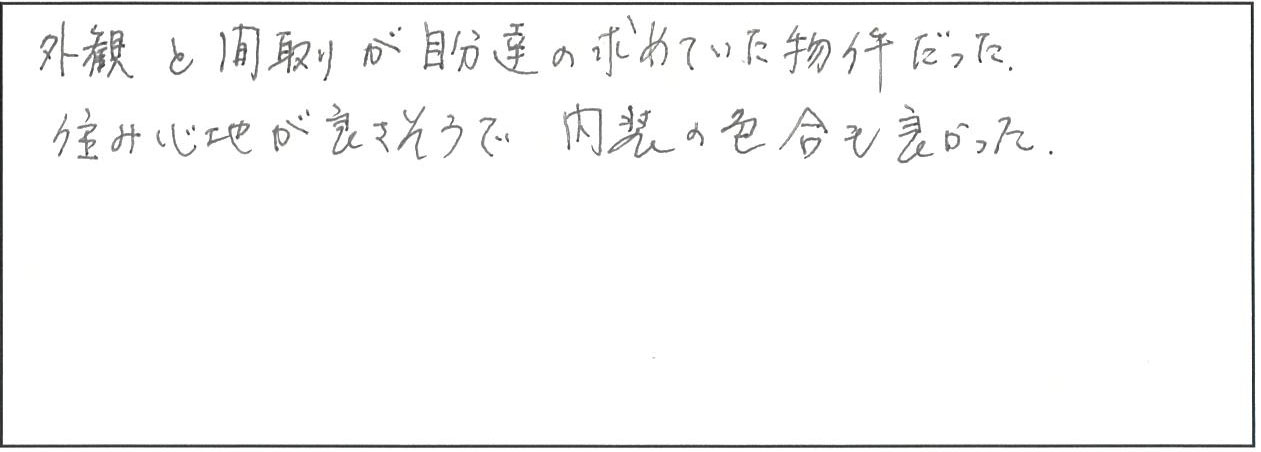 外観と間取りが自分達の求めていた物件だった.
住み心地が良さそうで 内装の色合も良かった.